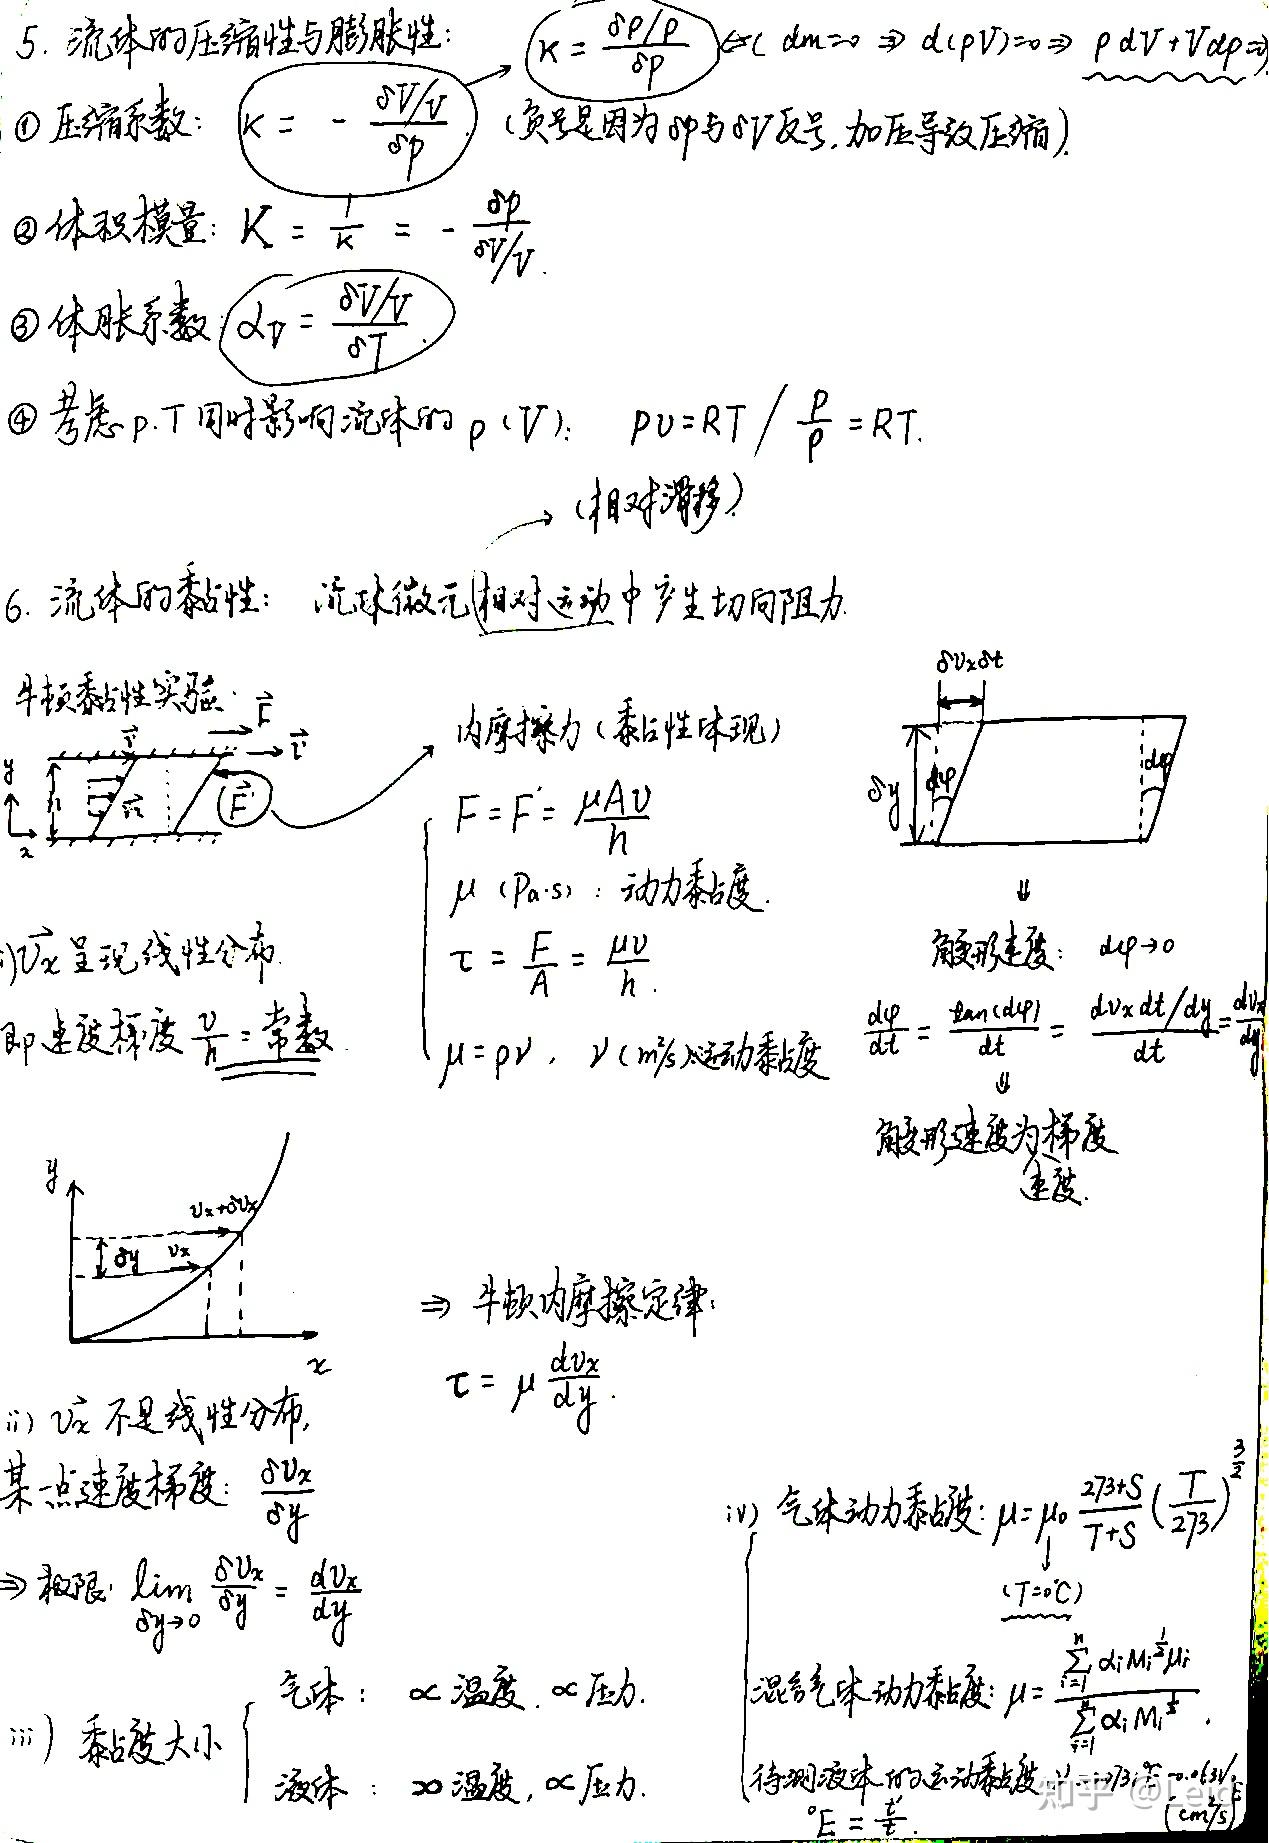 5. 流体的压缩性与膨胀性: κ = (δρ/ρ)/δp ⇐ ( dm=0 ⇒ d(ρV)=0 ⇒ ρdV+Vdρ=0
① 压缩系数: κ = - (δV/V)/δp (负号是因为δp与δV反号,加压导致压缩).
② 体积模量: K = 1/κ = - δp/(δV/V).
③ 体胀系数 αv = (δV/V)/δT.
④ 考虑p.T同时影响流体的ρ(V): pυ=RT / p/ρ = RT.
(相对滑移)
6. 流体的黏性: 流体微元相对运动中产生切向阻力.
牛顿黏性实验.
F
F'
h
y
x
内摩擦力 (黏性体现)
F = F' = μAυ/h
μ (Pa·s) : 动力黏度.
τ = F/A = μυ/h.
μ = ρν , ν (m²/s):运动黏度
δυxδt
δy
dφ
dφ
⇓
角变形速度: dφ→0
dφ/dt = tan(dφ)/dt = (dυxdt/dy)/dt = dυx/dy
⇓
角变形速度为梯度
速度.
i) υx 呈现线性分布.
即速度梯度 υ/h = 常数.
y
υx+δυx
δy
υx
x
⇒ 牛顿内摩擦定律:
τ = μ dυx/dy.
ii) υx 不是线性分布,
某一点速度梯度: δυx/δy
⇒ 极限: lim δy→0 δυx/δy = dυx/dy
iii) 黏度大小
气体: ∝ 温度, ∝ 压力.
液体: 温度, ∝ 压力.
iv) 气体动力黏度: μ = μ₀ (273+S)/(T+S) (T/273)^(3/2)
(T=0℃)
混合气体动力黏度: μ = Σ(i=1→n) αiMi^(1/2)μi / Σ(i=1→n) αiMi^(1/2).
待测液体的运动黏度
(cm²/s)
°E = t'/t.
知乎 @Leid